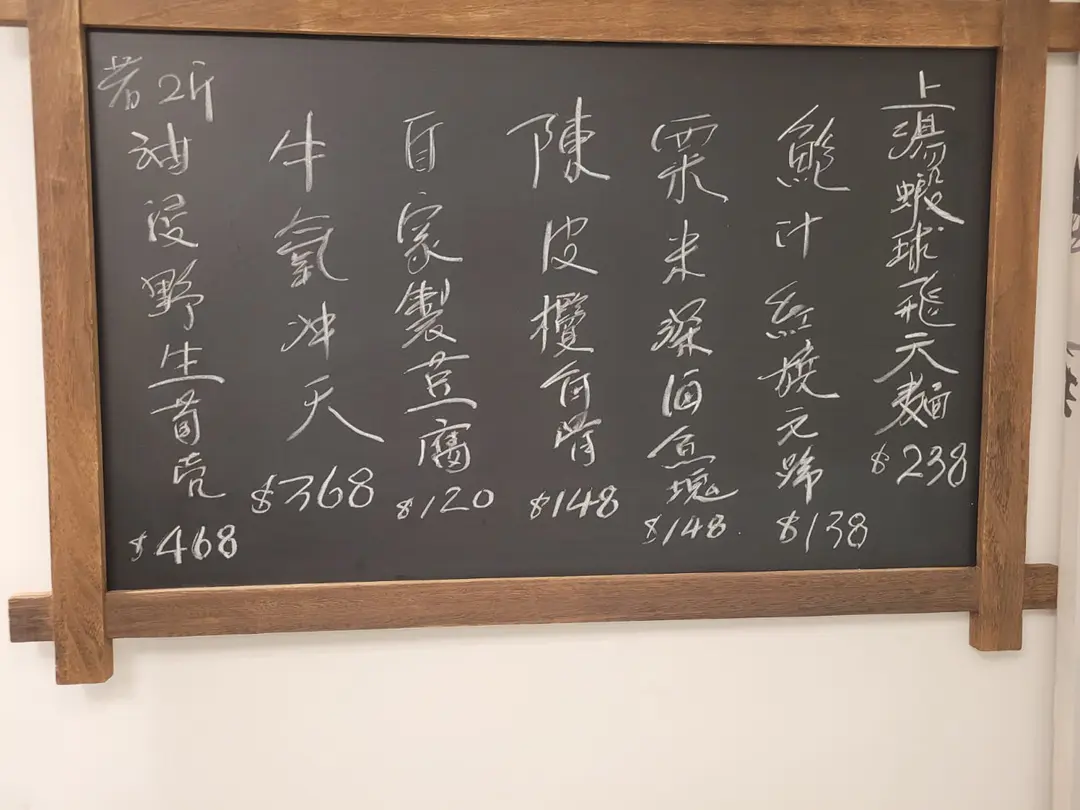 上湯蝦球飛天麵
$238
鮑汁紅燒元蹄
$138
粟米深海魚塊
$148
陳皮欖豆骨
$148
自家製荳腐
$120
牛氣冲天
$368
2斤
油浸野生荀壳
$468